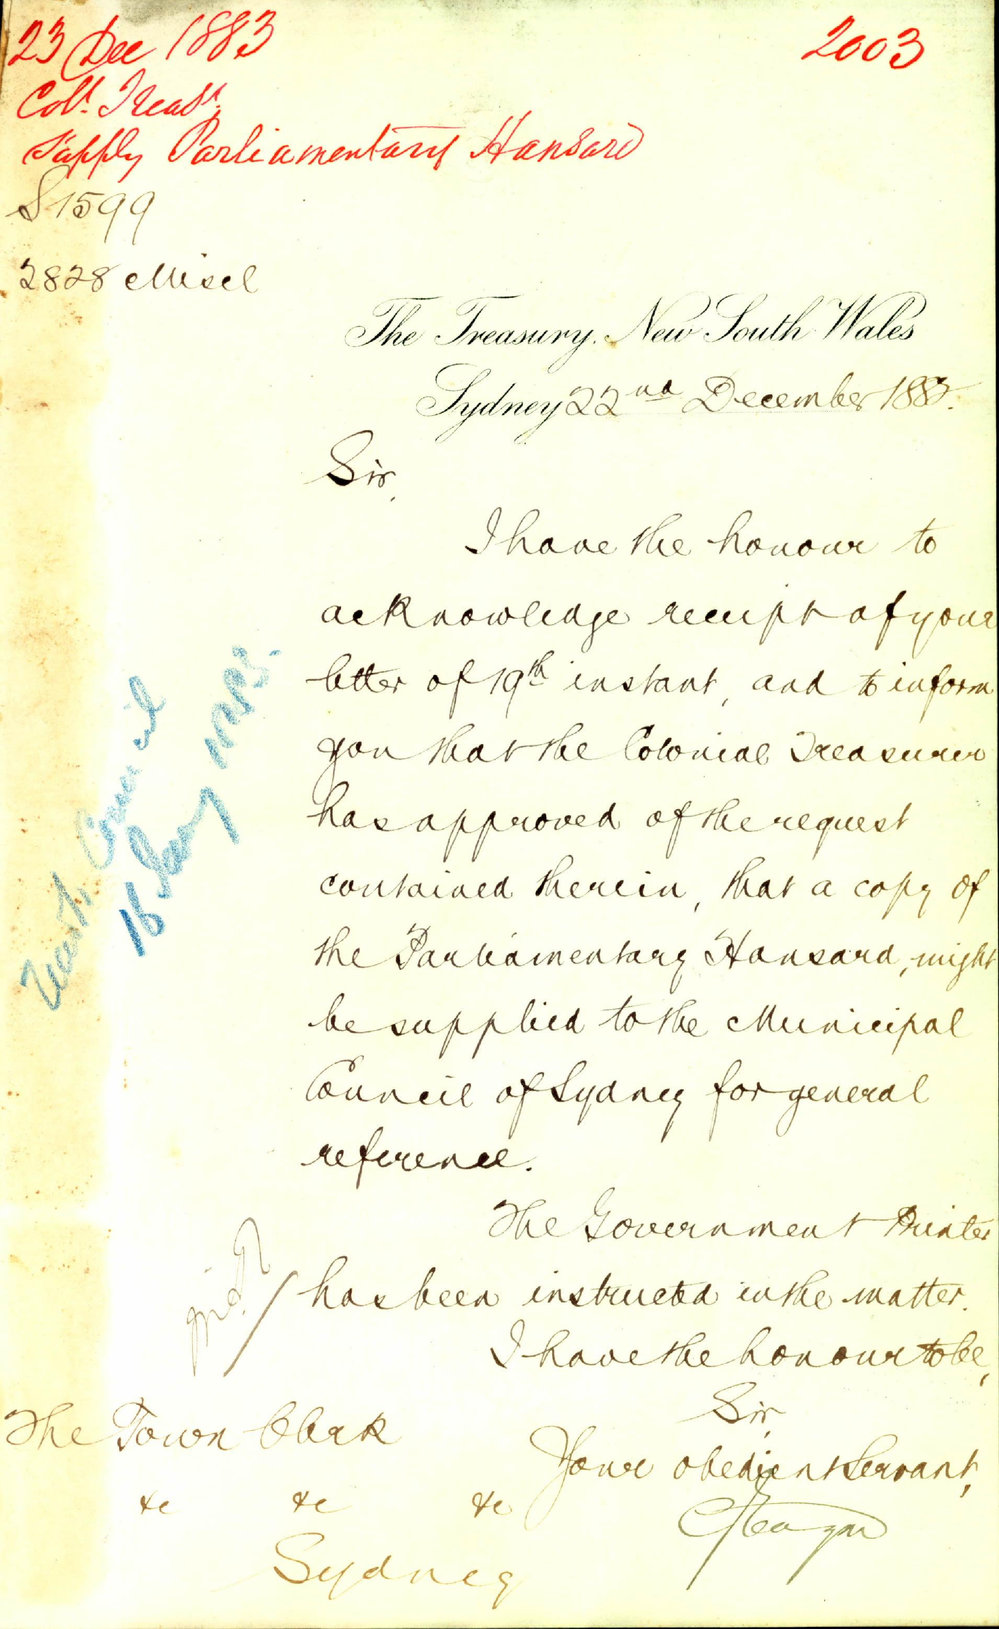 23 Dec 1883
2003
Colˡ Treasʳ
Supply Parliamentary Hansard
S1599
2828 Miscl
The Treasury, New South Wales
Sydney 22nd December 1883.
Sir,
I have the honour to
acknowledge receipt of your
letter of 19th instant, and to inform
you that the Colonial Treasurer
has approved of the request
contained therein, that a copy of
the Parliamentary Hansard, might
be supplied to the Municipal
Council of Sydney for general
reference.
The Government Printer
has been instructed in the matter.
I have the honour to be,
Sir,
Your obedient Servant,
The Town Clerk
&c &c &c
Sydney
Council
16 Jany